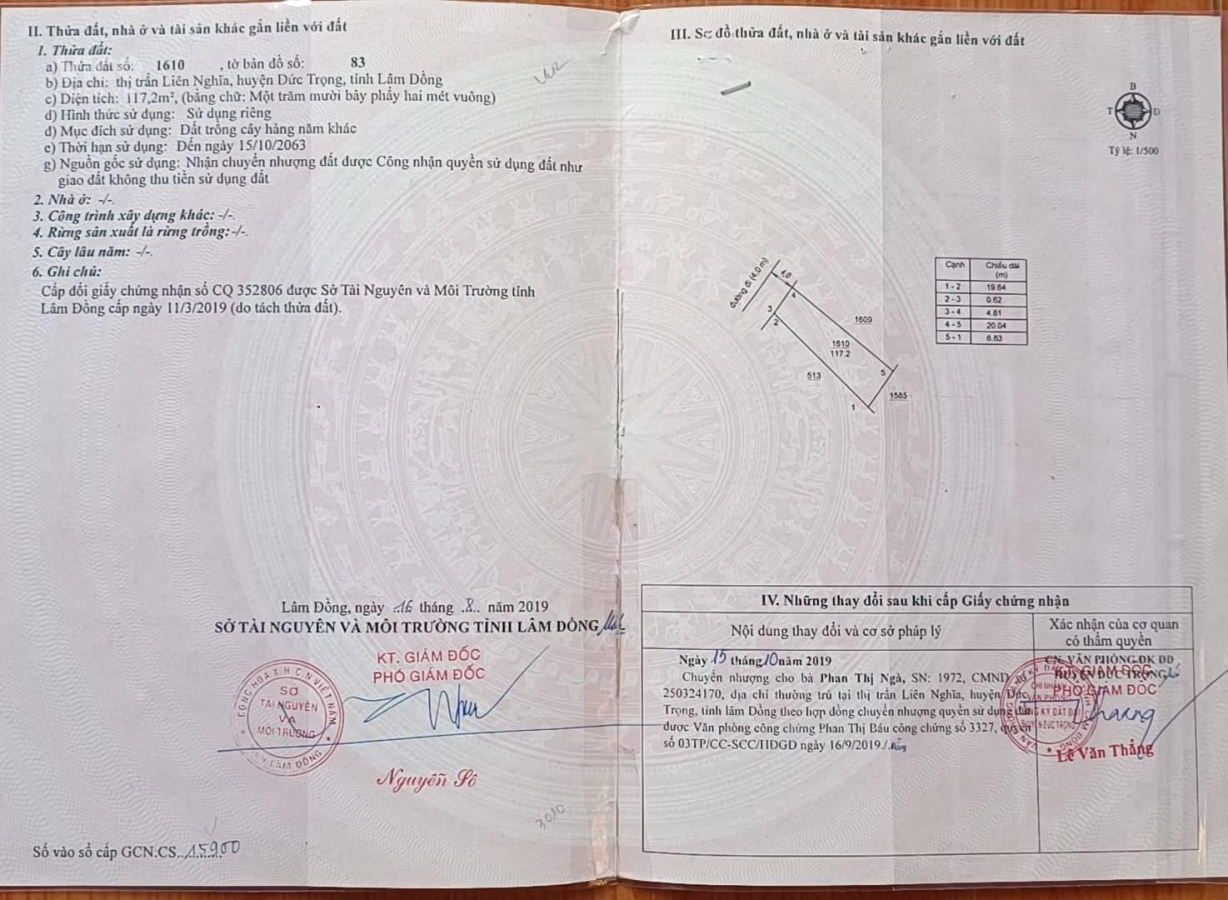 II. Thửa đất, nhà ở và tài sản khác gắn liền với đất
1. Thửa đất:
a) Thửa đất số: 1610 , tờ bản đồ số: 83
b) Địa chỉ: thị trấn Liên Nghĩa, huyện Đức Trọng, tỉnh Lâm Đồng
c) Diện tích: 117,2m², (bằng chữ: Một trăm mười bảy phẩy hai mét vuông)
d) Hình thức sử dụng: Sử dụng riêng
đ) Mục đích sử dụng: Đất trồng cây hàng năm khác
e) Thời hạn sử dụng: Đến ngày 15/10/2063
g) Nguồn gốc sử dụng: Nhận chuyển nhượng đất được Công nhận quyền sử dụng đất như
giao đất không thu tiền sử dụng đất
2. Nhà ở: -/-.
3. Công trình xây dựng khác: -/-.
4. Rừng sản xuất là rừng trồng:-/-.
5. Cây lâu năm: -/-.
6. Ghi chú:
Cấp đổi giấy chứng nhận số CQ 352806 được Sở Tài Nguyên và Môi Trường tỉnh
Lâm Đồng cấp ngày 11/3/2019 (do tách thửa đất).
Lâm Đồng, ngày 16 tháng 8 năm 2019
SỞ TÀI NGUYÊN VÀ MÔI TRƯỜNG TỈNH LÂM ĐỒNG
KT. GIÁM ĐỐC
PHÓ GIÁM ĐỐC
CỘNG HÒA X.H.C.N VIỆT NAM
SỞ
TÀI NGUYÊN
VÀ
MÔI TRƯỜNG
TỈNH LÂM ĐỒNG
Nguyễn Sô
3010
Số vào sổ cấp GCN:CS..15900
III. Sơ đồ thửa đất, nhà ở và tài sản khác gắn liền với đất
B
T
Đ
N
Tỷ lệ: 1/500
đường đi (4.0 m)
4.0
4
3
2
1609
1610
117.2
513
5
1585
1
Cạnh Chiều dài (m)
1 - 2 19.64
2 - 3 0.62
3 - 4 4.81
4 - 5 20.04
5 - 1 6.83
IV. Những thay đổi sau khi cấp Giấy chứng nhận
Nội dung thay đổi và cơ sở pháp lý
Xác nhận của cơ quan
có thẩm quyền
Ngày 15 tháng 10 năm 2019
Chuyển nhượng cho bà Phan Thị Ngà, SN: 1972, CMND
250324170, địa chỉ thường trú tại thị trấn Liên Nghĩa, huyện Đức
Trọng, tỉnh lâm Đồng theo hợp đồng chuyển nhượng quyền sử dụng đất
được Văn phòng công chứng Phan Thị Báu công chứng số 3327, quyển
số 03TP/CC-SCC/HĐGD ngày 16/9/2019./.
CN. VĂN PHÒNG ĐK ĐĐ
HUYỆN ĐỨC TRỌNG
KT. GIÁM ĐỐC
PHÓ GIÁM ĐỐC
Lê Văn Thắng